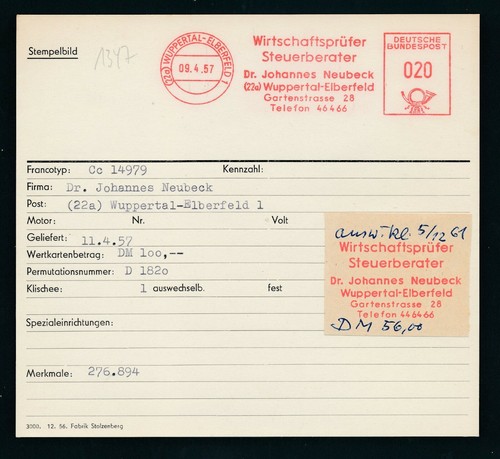 Stempelbild
1347
(22a) WUPPERTAL-ELBERFELD 1
09.4.57
Wirtschaftsprüfer
Steuerberater
Dr. Johannes Neubeck
(22a) Wuppertal-Elberfeld
Gartenstrasse 28
Telefon 46466
DEUTSCHE
BUNDESPOST
020
Francotyp: Cc 14979 Kennzahl:
Firma: Dr. Johannes Neubeck
Post: (22a) Wuppertal-Elberfeld 1
Motor: Nr. Volt
Geliefert: 11.4.57
Wertkartenbetrag: DM 100,--
Permutationsnummer: D 1820
Klischee: 1 auswechselb. fest
Spezialeinrichtungen:
Merkmale: 276.894
ausw. kl. 5/12 61
Wirtschaftsprüfer
Steuerberater
Dr. Johannes Neubeck
Wuppertal-Elberfeld
Gartenstrasse 28
Telefon 446466
DM 56,00
3000. 12. 56. Fabrik Stolzenberg